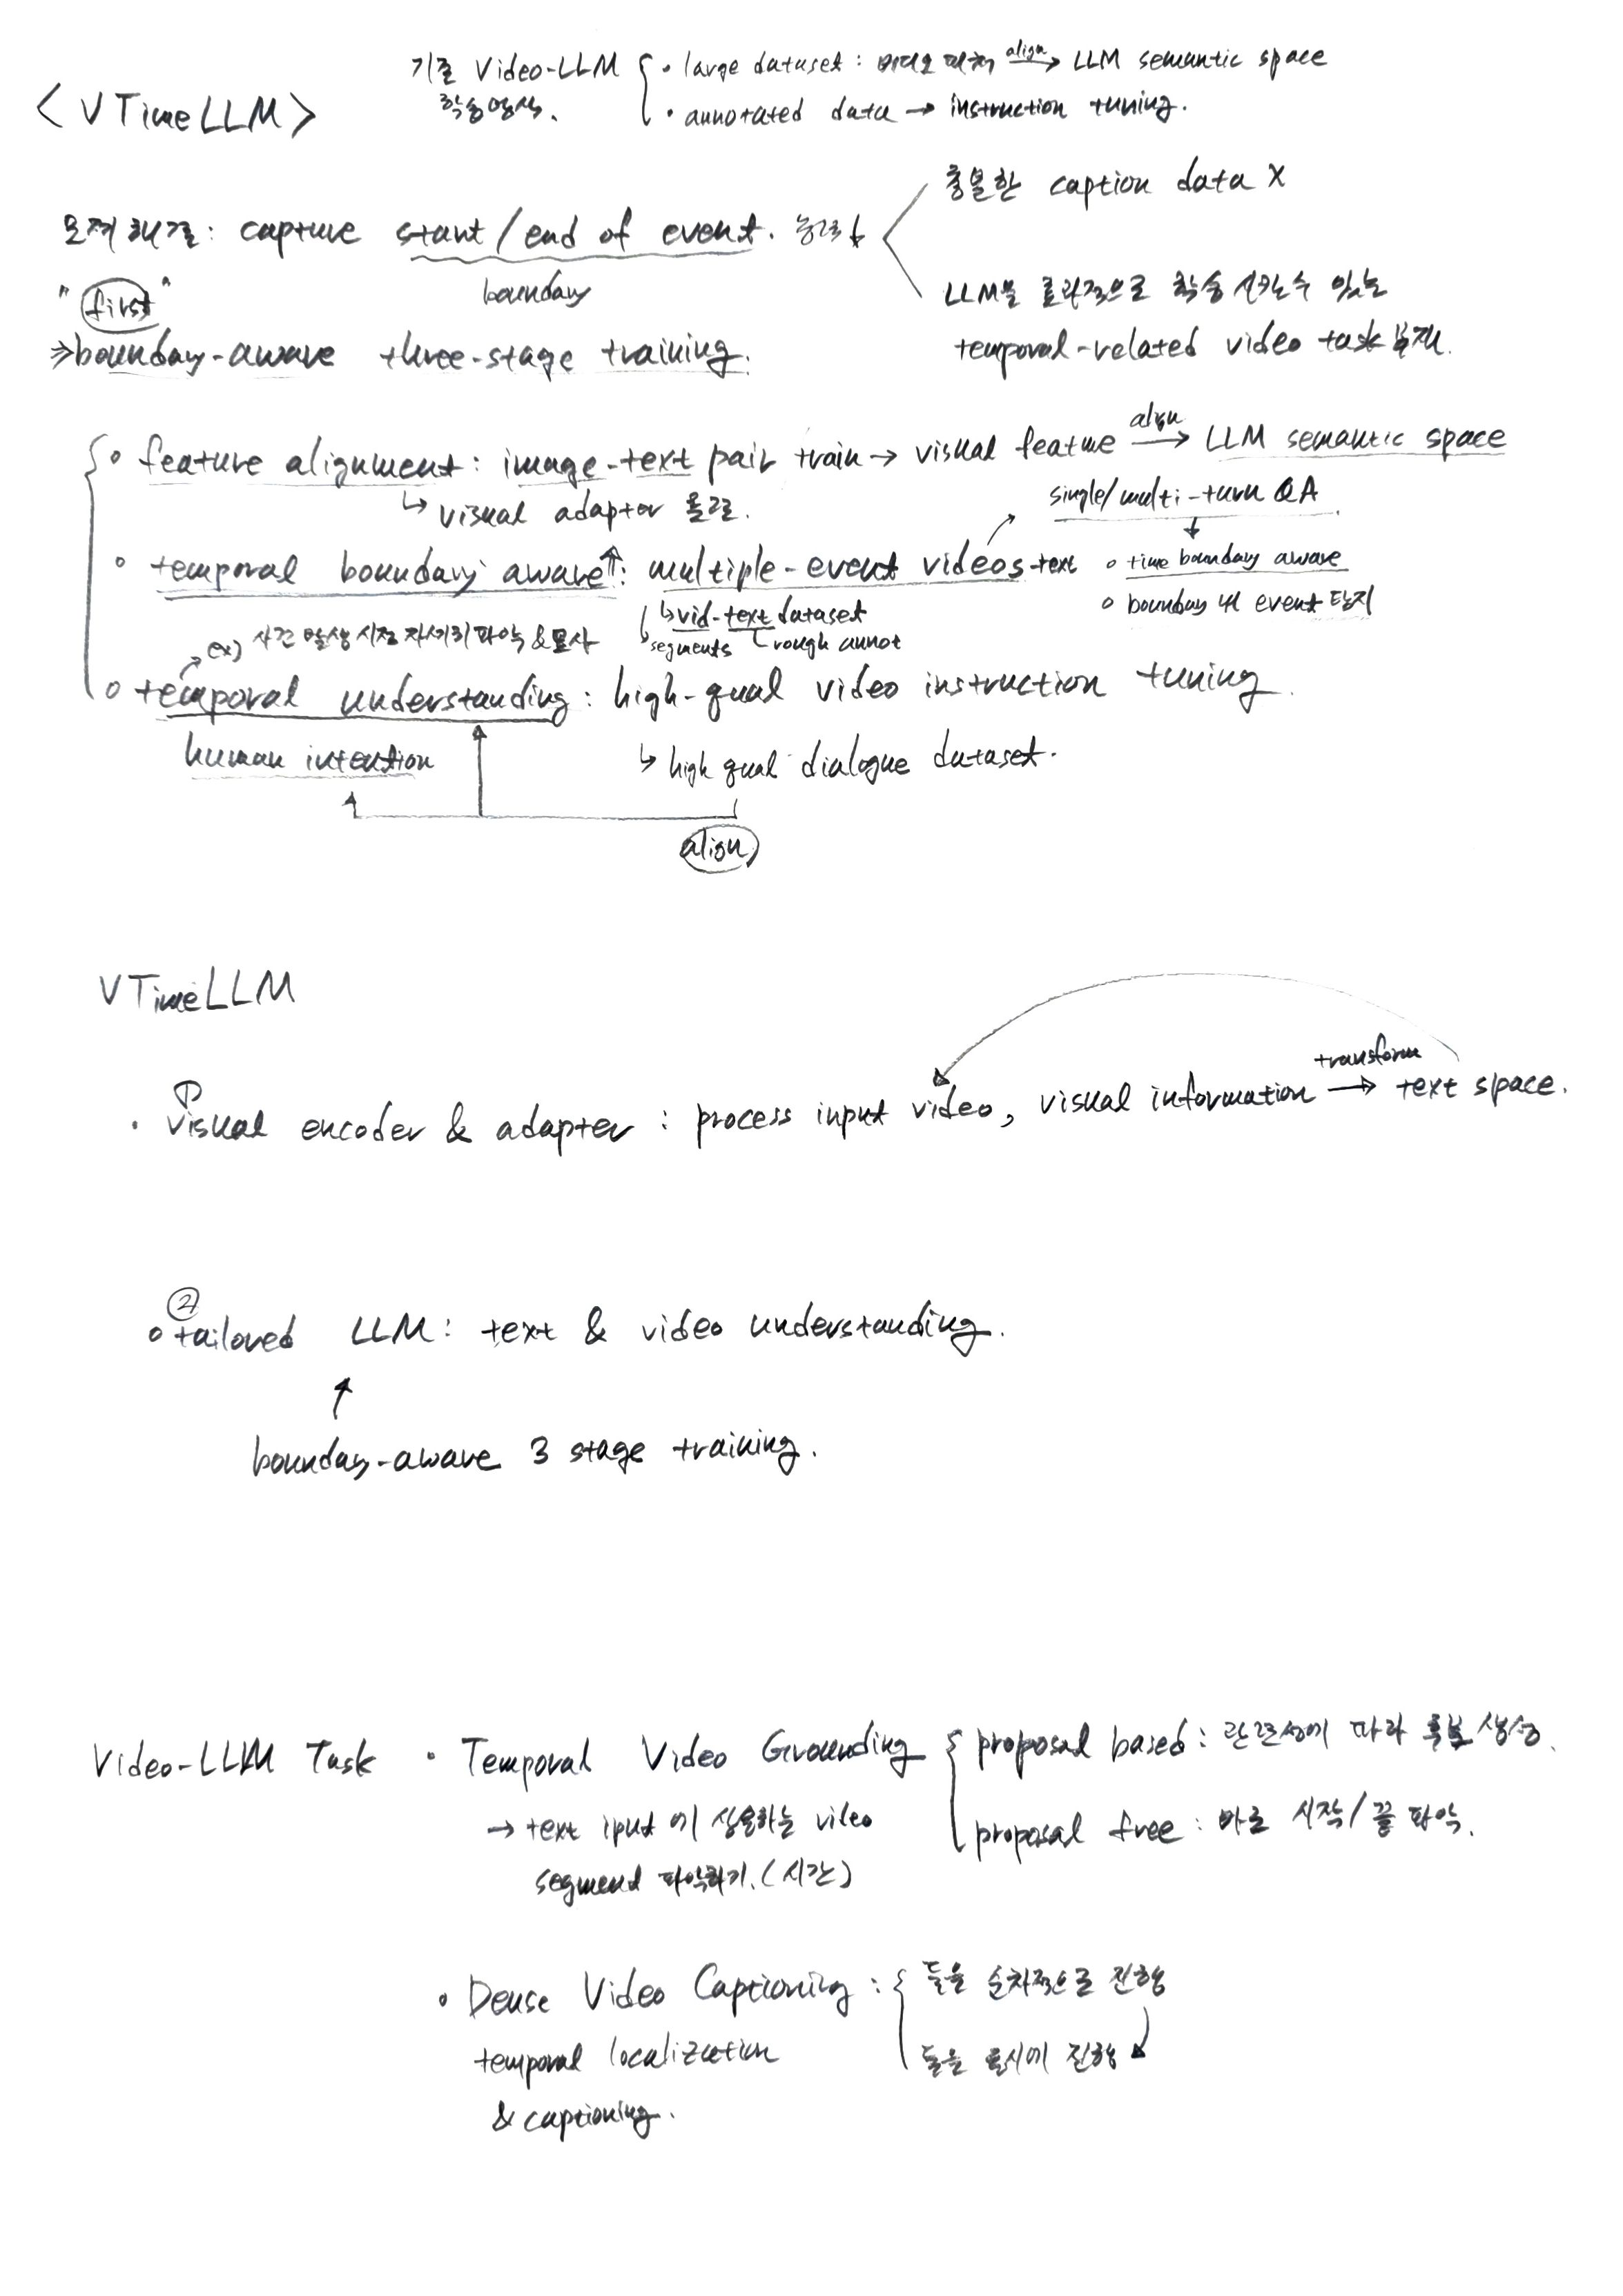 <VTimeLLM>
기존 Video-LLM
학습양상.
• large dataset : 비디오 피쳐 align → LLM semantic space
• annotated data → instruction tuning.
문제 해결: capture start/end of event. 능력 ↓
boundary
충분한 caption data X
LLM을 효과적으로 학습 시킬 수 있는
temporal-related video task 부재.
"first"
⇒ boundary-aware three-stage training.
◦ feature alignment : image-text pair train → visual feature align → LLM semantic space
↳ visual adapter 활용.
single/multi-turn QA
◦ temporal boundary aware↑: multiple-event videos-text
◦ time boundary aware
◦ boundary 내 event 탐지
↳ vid-text dataset
segments
rough annot
ex) 사건 발생 시점 자세히 파악 & 묘사
◦ temporal understanding : high-qual video instruction tuning.
human intention
↳ high qual dialogue dataset.
align
VTimeLLM
①
• visual encoder & adapter : process input video, visual information transform → text space.
②
◦ tailored LLM : text & video understanding.
↑
boundary-aware 3 stage training.
Video-LLM Task
• Temporal Video Grounding
proposal based : 관련성에 따라 후보 생성.
proposal free : 바로 시작/끝 파악.
→ text iput에 상응하는 video
segment 파악하기. (시간)
• Dense Video Captioning :
둘을 순차적으로 진행
둘을 동시에 진행
temporal localization
& captioning.